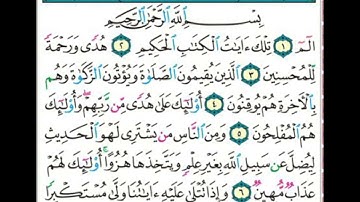 بِسْمِ ٱللَّهِ ٱلرَّحْمَٰنِ ٱلرَّحِيمِ
الٓمٓ ١ تِلْكَ ءَايَٰتُ ٱلْكِتَٰبِ ٱلْحَكِيمِ ٢ هُدًى وَرَحْمَةً
لِّلْمُحْسِنِينَ ٣ ٱلَّذِينَ يُقِيمُونَ ٱلصَّلَوٰةَ وَيُؤْتُونَ ٱلزَّكَوٰةَ وَهُم
بِٱلْءَاخِرَةِ هُمْ يُوقِنُونَ ٤ أُو۟لَٰٓئِكَ عَلَىٰ هُدًى مِّن رَّبِّهِمْ ۖ وَأُو۟لَٰٓئِكَ
هُمُ ٱلْمُفْلِحُونَ ٥ وَمِنَ ٱلنَّاسِ مَن يَشْتَرِى لَهْوَ ٱلْحَدِيثِ
لِيُضِلَّ عَن سَبِيلِ ٱللَّهِ بِغَيْرِ عِلْمٍ وَيَتَّخِذَهَا هُزُوًا ۚ أُو۟لَٰٓئِكَ لَهُمْ
عَذَابٌ مُّهِينٌ ٦ وَإِذَا تُتْلَىٰ عَلَيْهِ ءَايَٰتُنَا وَلَّىٰ مُسْتَكْبِرًا